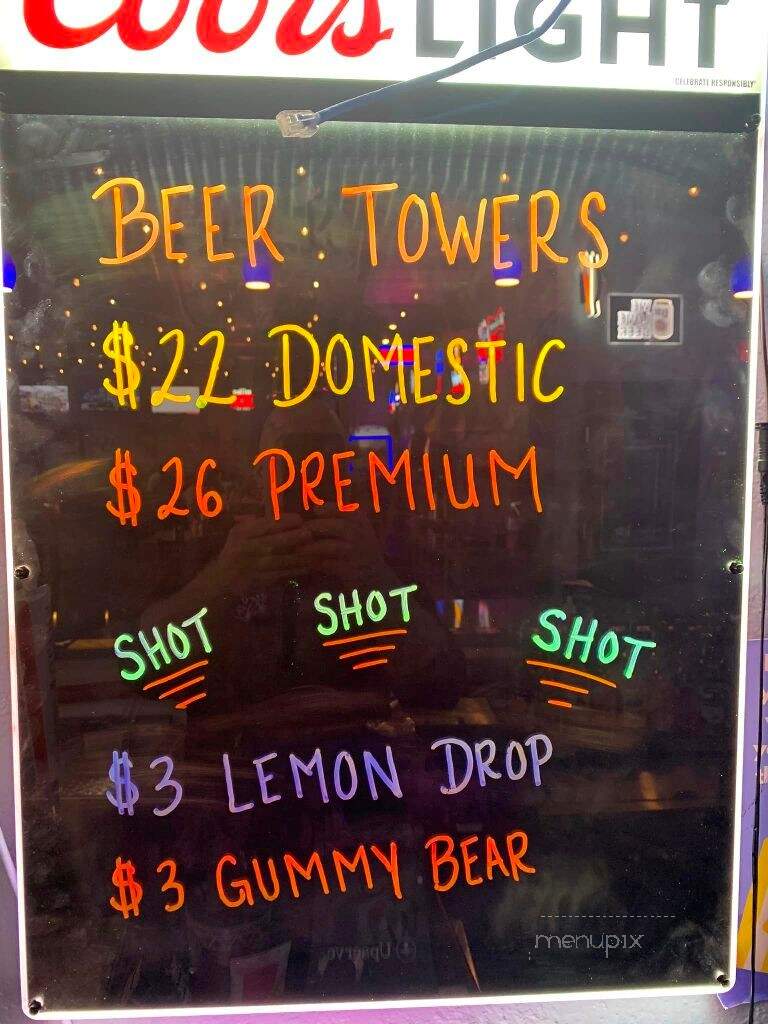 Coors LIGHT
CELEBRATE RESPONSIBLY
BEER TOWERS
$22 DOMESTIC
$26 PREMIUM
SHOT SHOT SHOT
$3 LEMON DROP
$3 GUMMY BEAR
menupix